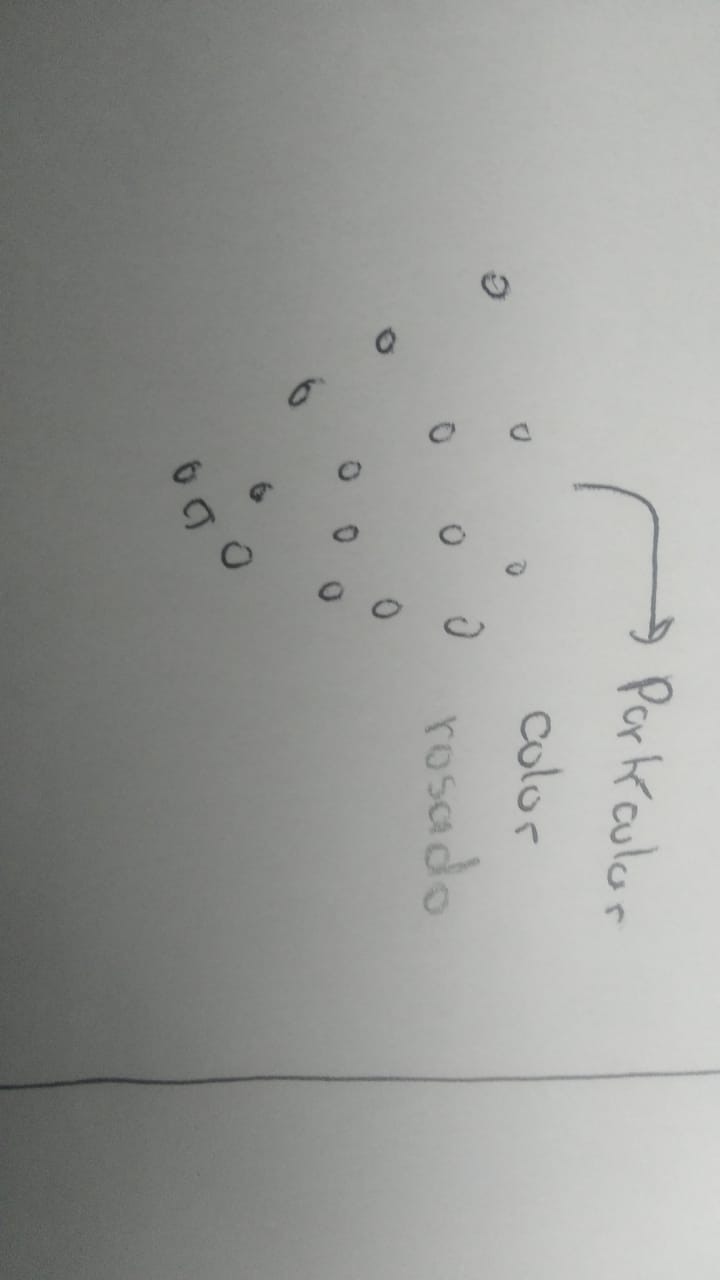 Partícular
color
rosado